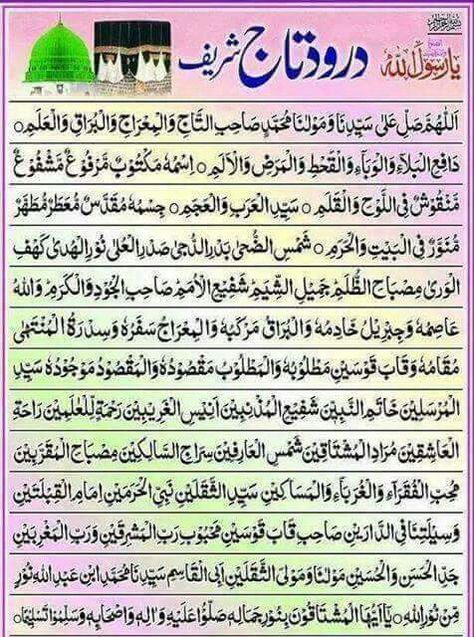 درود تاج شریف
یا رسول اللہ
اَللّٰهُمَّ صَلِّ عَلٰی سَیِّدِنَا وَمَوْلٰنَا مُحَمَّدٍ صَاحِبِ التَّاجِ وَالْمِعْرَاجِ وَالْبُرَاقِ وَالْعَلَمِ ○
دَافِعِ الْبَلَآءِ وَالْوَبَآءِ وَالْقَحْطِ وَالْمَرَضِ وَالْاَلَمِ ○ اِسْمُهٗ مَکْتُوْبٌ مَّرْفُوْعٌ مَّشْفُوْعٌ
مَّنْقُوْشٌ فِی اللَّوْحِ وَالْقَلَمِ ○ سَیِّدِ الْعَرَبِ وَالْعَجَمِ ○ جِسْمُهٗ مُقَدَّسٌ مُّعَطَّرٌ مُّطَهَّرٌ
مُّنَوَّرٌ فِی الْبَیْتِ وَالْحَرَمِ ○ شَمْسِ الضُّحٰی بَدْرِ الدُّجٰی صَدْرِ الْعُلٰی نُوْرِ الْهُدٰی کَهْفِ
الْوَرٰی مِصْبَاحِ الظُّلَمِ جَمِیْلِ الشِّیَمِ شَفِیْعِ الْاُمَمِ صَاحِبِ الْجُوْدِ وَالْکَرَمِ وَاللّٰهُ
عَاصِمُهٗ وَجِبْرِیْلُ خَادِمُهٗ وَالْبُرَاقُ مَرْکَبُهٗ وَالْمِعْرَاجُ سَفَرُهٗ وَسِدْرَةُ الْمُنْتَهٰی
مَقَامُهٗ وَقَابَ قَوْسَیْنِ مَطْلُوْبُهٗ وَالْمَطْلُوْبُ مَقْصُوْدُهٗ وَالْمَقْصُوْدُ مَوْجُوْدُهٗ سَیِّدِ
الْمُرْسَلِیْنَ خَاتَمِ النَّبِیِّیْنَ شَفِیْعِ الْمُذْنِبِیْنَ اَنِیْسِ الْغَرِیْبِیْنَ رَحْمَةٍ لِّلْعٰلَمِیْنَ رَاحَةِ
الْعَاشِقِیْنَ مُرَادِ الْمُشْتَاقِیْنَ شَمْسِ الْعَارِفِیْنَ سِرَاجِ السَّالِکِیْنَ مِصْبَاحِ الْمُقَرَّبِیْنَ
مُحِبِّ الْفُقَرَآءِ وَالْغُرَبَآءِ وَالْمَسَاکِیْنِ سَیِّدِ الثَّقَلَیْنِ نَبِیِّ الْحَرَمَیْنِ اِمَامِ الْقِبْلَتَیْنِ
وَسِیْلَتِنَا فِی الدَّارَیْنِ صَاحِبِ قَابَ قَوْسَیْنِ مَحْبُوْبِ رَبِّ الْمَشْرِقَیْنِ وَرَبِّ الْمَغْرِبَیْنِ
جَدِّ الْحَسَنِ وَالْحُسَیْنِ مَوْلٰنَا وَمَوْلَی الثَّقَلَیْنِ اَبِی الْقَاسِمِ سَیِّدِنَا مُحَمَّدِ ابْنِ عَبْدِ اللّٰهِ نُوْرٍ
مِّنْ نُوْرِ اللّٰهِ ○ یٰٓاَیُّهَا الْمُشْتَاقُوْنَ بِنُوْرِ جَمَالِهٖ صَلُّوْا عَلَیْهِ وَاٰلِهٖ وَاَصْحَابِهٖ وَسَلِّمُوْا تَسْلِیْمًا ○